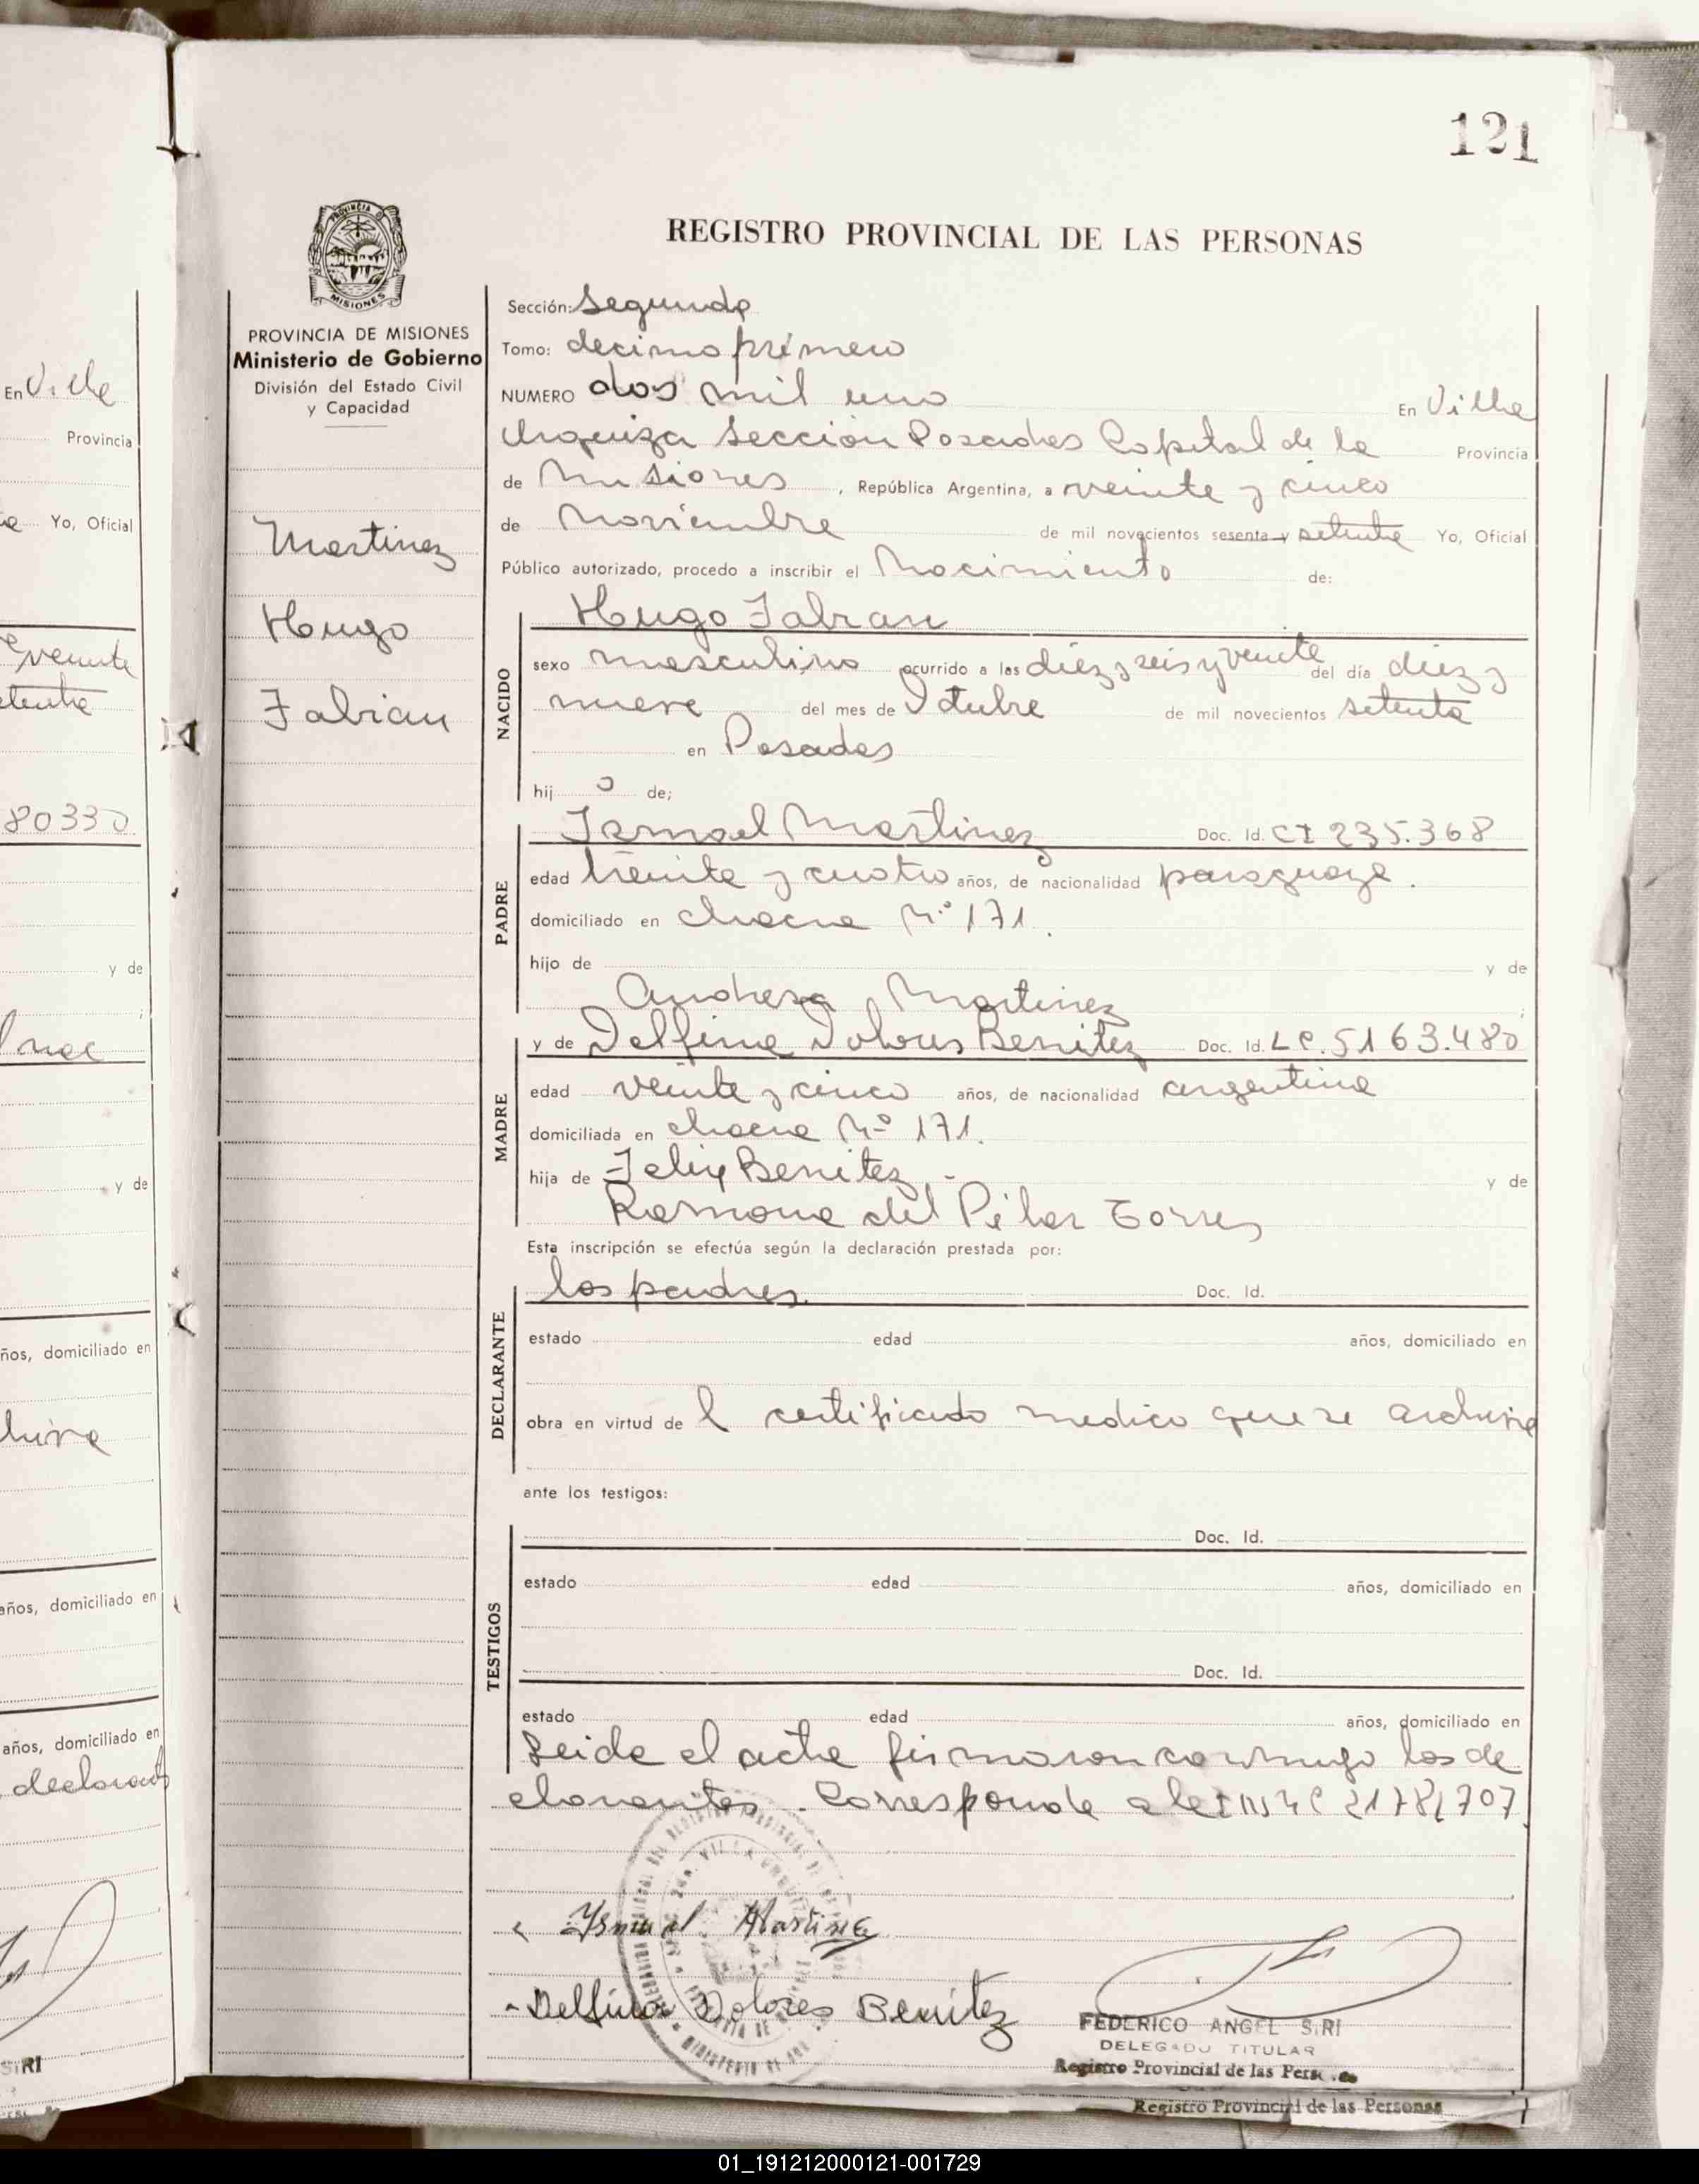 121
REGISTRO PROVINCIAL DE LAS PERSONAS
PROVINCIA DE MISIONES
Ministerio de Gobierno
División del Estado Civil
y Capacidad
Martinez
Hugo
Fabian
Sección: Segunda
Tomo: decimo primero
NUMERO dos mil uno En Villa
Urquiza Sección Posadas Capital de la Provincia
de Misiones, República Argentina, a veinte y cinco
de Noviembre de mil novecientos sesenta y setenta Yo, Oficial
Público autorizado, procedo a inscribir el Nacimiento de:
NACIDO
Hugo Fabian
sexo masculino ocurrido a las diez y seis y veinte del día diez y
nueve del mes de Octubre de mil novecientos setenta
en Posadas
hijo de;
PADRE
Ismael Martinez Doc. Id. CI 235.368
edad treinta y cuatro años, de nacionalidad paraguaya.
domiciliado en chacra Nº 171.
hijo de y de
Andresa Martinez ;
MADRE
y de Delfina Dolores Benitez Doc. Id. LC. 5163.480
edad veinte y cinco años, de nacionalidad argentina
domiciliada en chacra Nº 171.
hija de Felix Benitez.- y de
Ramona del Pilar Torres
Esta inscripción se efectúa según la declaración prestada por:
DECLARANTE
los padres. Doc. Id.
estado edad años, domiciliado en
obra en virtud de l certificado medico que se archiva
ante los testigos:
TESTIGOS
Doc. Id.
estado edad años, domiciliado en
Doc. Id.
estado edad años, domiciliado en
Leida el acta firmaron conmigo los de
clarantes. Corresponde a
Ismael Martinez
Delfina Dolores Benitez
FEDERICO ANGEL SIRI
DELEGADO TITULAR
Registro Provincial de las Pers
Registro Provincial de las Personas
En Villa
Provincia
Yo, Oficial
80330
y de
y de
ños, domiciliado en
años, domiciliado en
años, domiciliado en
SIRI
01_191212000121-001729